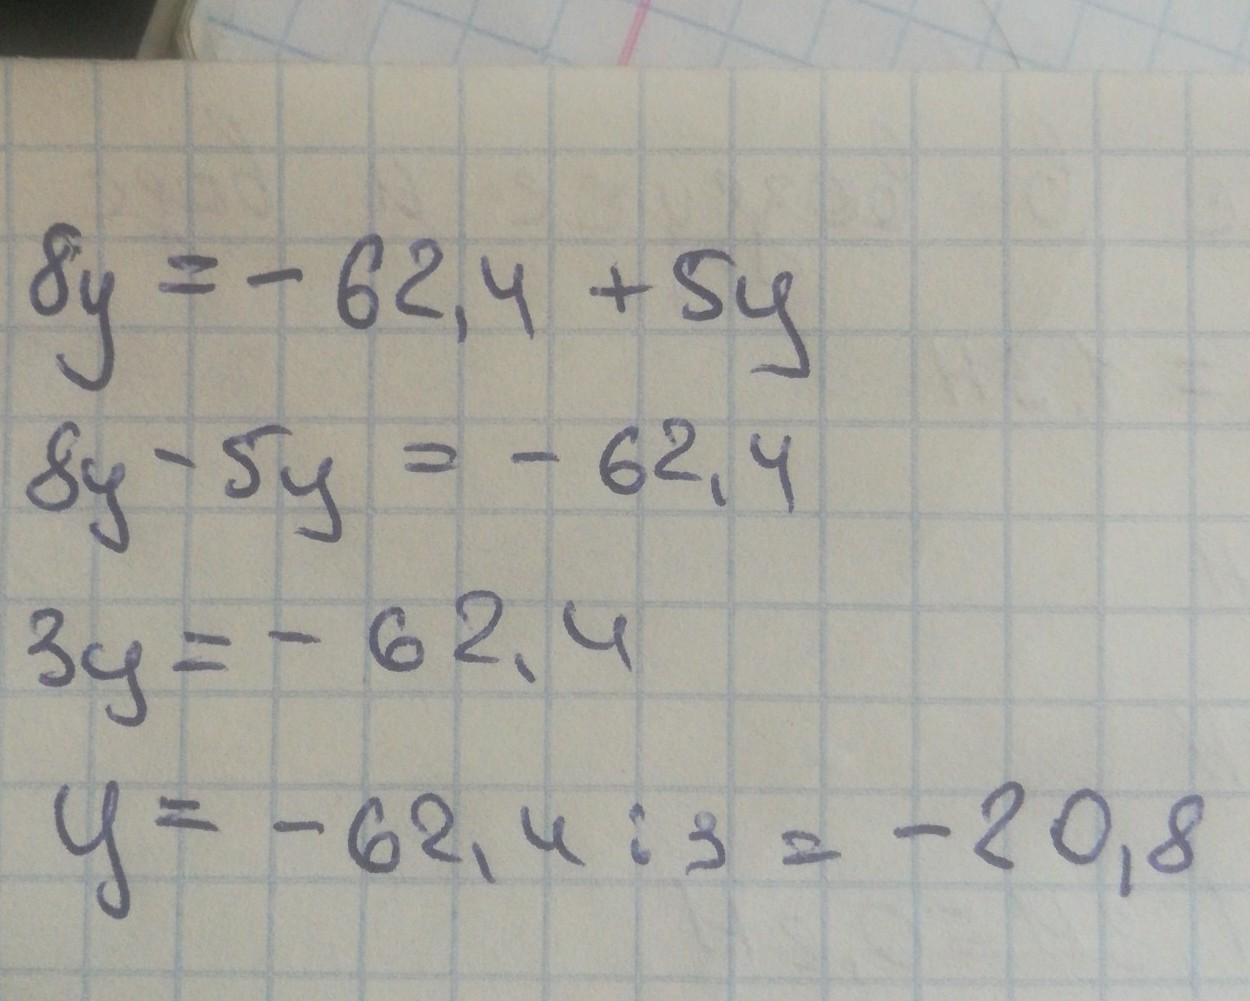 8y = - 62,4 + 5y
8y - 5y = - 62,4
3y = - 62,4
y = - 62,4 : 3 = - 20,8